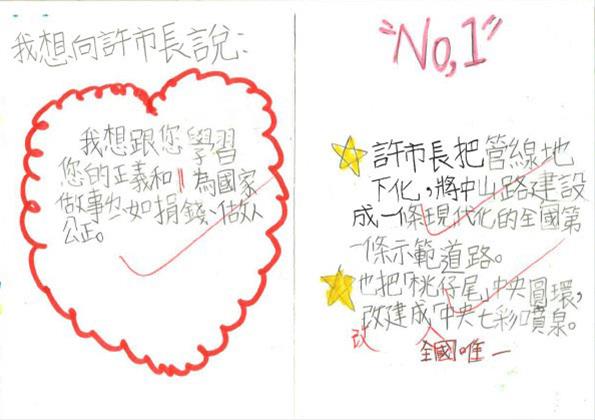 我想向許市長說：
我想跟您學習
您的正義和為國家
做事也如捐錢、做人
公正。
"No,1"
許市長把管線地
下化，將中山路建設
成一條現代化的全國第
一條示範道路。
也把「桃仔尾」中央圓環，
改建成「中央七彩噴泉。
改
全國唯一